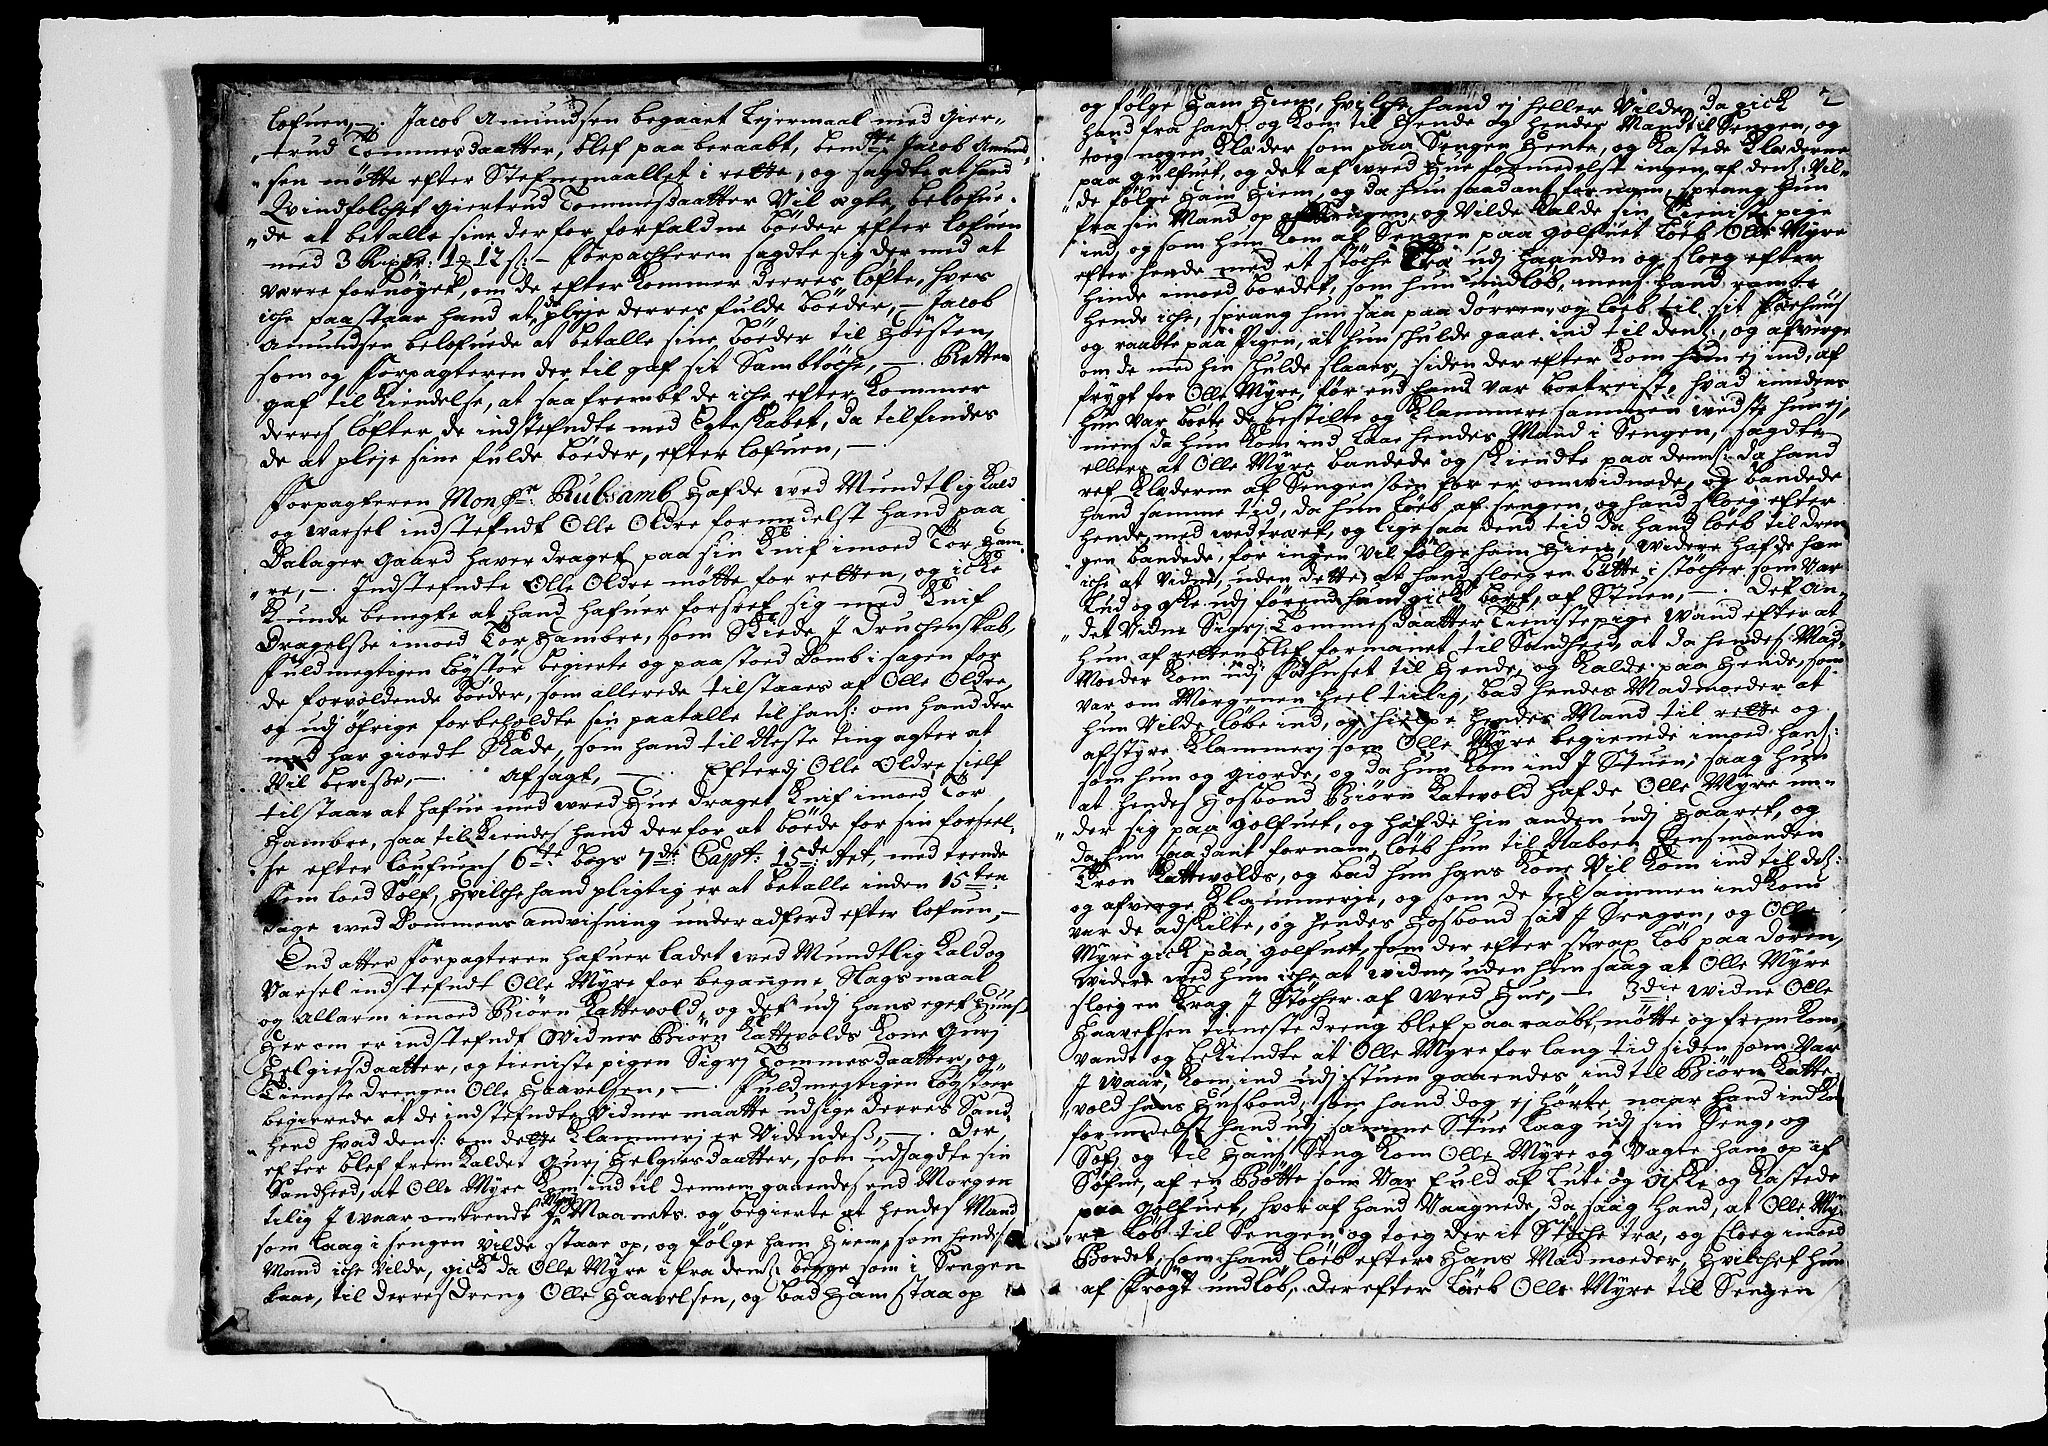 lofuen, — Jacob Amundsen begaaet Leiermaal med Gier-
trud Tommesdaatter, blef paaberaabt, bemte Jacob Amund-
sen møtte efter Stefnemaallet i rette, og sagde at hand
Qvindfolchet Giertrud Tommesdaatter Vil ægte, belofue-
de at betalle sine derfor forfaldne bøeder efter lofuen
med 3 Rixdr: 1 12 s: — Forpachteren sagde sig der med at
værre fornøyet, om de efterkommer derres løfte, hves
iche paastaar hand at de pleje derres fulde bøeder, — Jacob
Amundsen belofuede at betalle sine bøeder til Høsten,
som og Forpagteren der til gaf sit Sambtøche, — Retten
gaf til Kiendelse, at saa frembt de iche efterkommer
derres løfter de indstefndte med Egteskabet, da tilfindes
de at pleje sine fulde bøeder, efter lofuen, —
Forpagteren Monsr: Rubsamb Hafde ved Mundtlig Kald
og Varsel indstefndt Olle Oldre formedelst hand paa
Dalager gaard haver draget paa sin Knif imoed Tor Ham-
re, — Indstefndte Olle Oldre møtte for retten, og icke
Kunde benegte at hand hafuer forseet sig med Knif
Dragelse imoed Tor Hambre, som Skiede J Druchenskab,
Fuldmegtigen Løgstør begierte og paastoed Domb i sagen for
de forvoldende bøeder, som allerede tilstaaes af Olle Oldre,
og udj øfrige forbeholdte sin paatalle til hans: om hand der
med har giordt Skade, som hand til Neste ting agter at
Vil bevisse, — Afsagt, — Efterdj Olle Oldre sielf
tilstaar at hafue med vred Hue draget Knif imoed Tor
Hambre, saa tilkiendes hand derfor at bøede for sin forseel-
se efter loufuens 6te bogs 7de Capt: 15de: Art, med trende
Fem loed Sølf, Hvilche hand pligtig er at betalle inden 15ten
Dage ved Dommens anvisning under adferd efter lofuen, —
End atter Forpagteren hafuer ladet ved Mundtlig Kald og
Varsel indstefndt Olle Myre for begangne Slagsmaal
og Allarm imoed Biørn Kattevold, og det udj hans eget Huus,
Her om er indstefndt Widner Biørn Kattevolds Kone Gurj
Helgiesdaatter, og tieniste pigen Sigrj Tommesdaatter, og
Tieneste drengen Olle Haavelsen, — Fuldmegtigen Løgstøer
begierede at de indstefndte Vidner maatte udsige derres Sand-
hed hvad dens: om dette Klammerj er Videndes, — Der
efter blef fremkaldet Gurj Helgiesdaatter, som udsagde sin
Sandhed, at Olle Myre Kom ind til dennem gaaendes end Morgen
tilig J vaar omtrendt Maij Maanets og begierte at hendes Mand
som laag i sengen Vilde staae op, og følge ham Hiem, som hendes
Mand iche Vilde, gick da Olle Myre i fra dens: begge som i Sengen
laae, til derres Dreng Olle Haavelsen, og bad Ham staa op
2
og følge Ham Hiem, hvilche hand ej heller Vilde, da gick
Hand fra hans: og Kom til Hende og hendes Mand til Sengen, og
toeg nogen Klæder som paa Sengen Hente, og Kastede Klæderne
paa gulfuet, og det af vred Hue formedelst ingen af dens: Vil-
de følge Ham Hiem, og da hun saadant fornam, sprang Hun
fra sin Mand op af Sengen, og Vilde Kalde sin Tieniste pige
ind, og som hun Kom af Sengen paa golfuet løeb Olle Myre
efter hende med et støche Træ udj Haanden og sloeg efter
Hinde imoed bordet, som hun undløb, mens hand ramte
Hende iche, sprang hun saa paa dørren, og løeb til sit Fæehuus
og raabte paa Pigen, at hun skulde gaae ind til dens:, og afverge
om de med hin skulde slaaes, siden der efter Kom hun ej ind, af
frygt for Olle Myre, før end hand Var bortreist, hvad imidens
hun Var borte de bestilte og Klammere sammen vedste hun ej,
mens da hun Kom ind laae hendes Mand i Sengen, sagde
ellers at Olle Myre bandede og skiendte paa dens: da hand
ref Klæderne af Sengen som før er omvidnede, og bandede
Hand samme tid, da hun løeb af sengen, og hand sloeg efter
Hende med vedtræet, og ligesaa dend tid da hand løeb til dren-
gen bandede, for ingen Vil følge ham Hiem, videre hafde hun
iche at Vidne, uden dette at hand sloeg en bøtte i støcher som Var
Lud og Aske udj førend hand gick bort, af Stuen, — Det An-
det Vidne Sigrj Tommesdaatter Tieniste pige vand efter at
Hun af retten blef formanet til Sandhed, at da hendes Mad-
Moeder Kom udj Fæhuset til Hende, og Kalde paa Hende, som
var om Morgenen Heel tilig, bad hendes Madmoeder at
hun Vilde løbe ind, og hielpe hendes Mand til rette og
afstyre Klammerj som Olle Myre begienede imoed hans:
som hun og giorde, og da hun Kom ind J Stuen, saag Hun
at hendes Hosbond Biørn Katevold hafde Olle Myre un-
der sig paa golfuet, og hafde hin anden udj Haaret, og
da hun saadant fornam, løeb hun til Naboen Lensmanden
Tron Kattevolds, og bad hun hans Kone Vil Kom ind til des:
og afverge Klammerje, og som de tilsammen indkom
var de adskilte, og hendes Hosbond sad J Sengen, og Olle
Myre gick paa golfuet, som der efter strax løb paa døren,
Videre ved hun iche at vidne, uden hun saag at Olle Myre
sloeg en Krag J støcher af vred Hue, — 3die vidne Olle
Haavelsen tieneste dreng blef paaraabt, møtte og fremkom,
vandt og bekiendte at Olle Myre for lang tid siden som Var
J Vaar, Kom ind udj stuen gaaendes ind til Biørn Katte-
vold hans Husbond, som hand dog ej hørte, naar hand indkom
formedelst hand udj samme Stue laag udj sin Seng, og
Sof, og til Hans Seng Kom Olle Myre og Vagte ham op af
Søfne, af en Bøtte som Var fuld af Lute og Aske og Kastede
paa golfuet, hvor af hand Vaagnede, da saag Hand, at Olle My-
re løb til Sengen og toeg der it Støche træ, og Sloeg imoed
Bordet, som hand løeb efter Hans Madmoeder, Hvilchet Hun
af Frøgt undløb, derefter løeb Olle Myre til Sengen